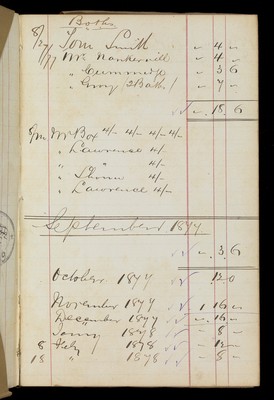 Baths
8/27/ Tom Smith " 4 "
Mr Nankervill " 4 "
" Cummings " 3 6
" Gray (2 Baths) " 7 "
" 18 6
Mr Box 4/- 4/- 4/- 4/-
" Lawrence 4/-
" " 4/-
" Lawrence 4/-
September 1877
" 3 6
October 1877
November 1877 1 16 "
December 1877 " 16 "
1878 " 8 "
8 Feby 1878 " 12 "
18 " 1878 " 8 "